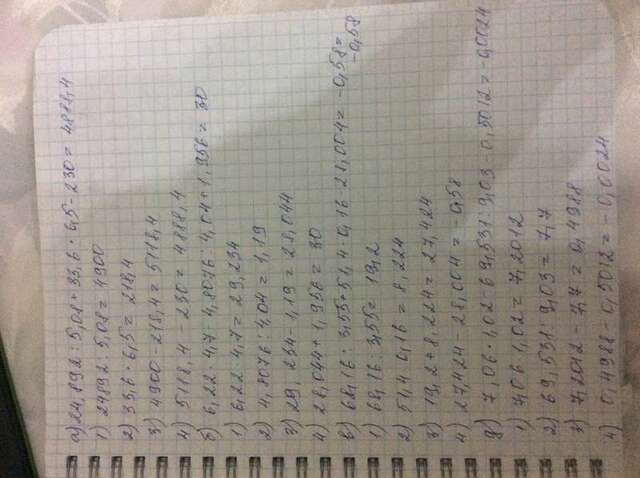 а) 24,892 : 5,08 + 33,6 · 6,5 - 230 = 4888,4
1) 24892 : 5,08 = 4900
2) 33,6 · 6,5 = 218,4
3) 4900 - 218,4 = 5118,4
4) 5118,4 - 230 = 4888,4
б) 6,22 · 4,7 - 4,8076 : 4,04 + 1,956 = 30
1) 6,22 · 4,7 = 29,234
2) 4,8076 : 4,04 = 1,19
3) 29,234 - 1,19 = 28,044
4) 28,044 + 1,956 = 30
в) 68,16 : 3,55 + 51,4 · 0,16 - 28,004 = -0,58 =
-0,58
1) 68,16 : 3,55 = 19,2
2) 51,4 · 0,16 = 8,224
3) 19,2 + 8,224 = 27,424
4) 27,424 - 28,004 = -0,58
д) 7,06 · 1,02 - 69,531 : 9,03 - 0,5012 = -0,0024
1) 7,06 · 1,02 = 7,2012
2) 69,531 : 9,03 = 7,7
3) 7,2012 - 7,7 = 0,4988
4) 0,4988 - 0,5012 = -0,0024